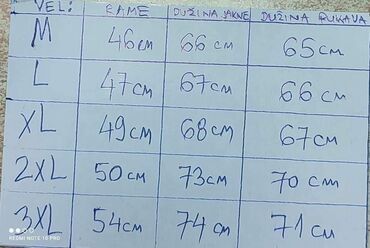 VEL: RAME DUŽINA JAKNE DUŽINA RUKAVA
M 46cm 66cm 65cm
L 47cm 67cm 66cm
XL 49cm 68cm 67cm
2XL 50cm 73cm 70cm
3XL 54cm 74cm 71cm
REDMI NOTE 10 PRO